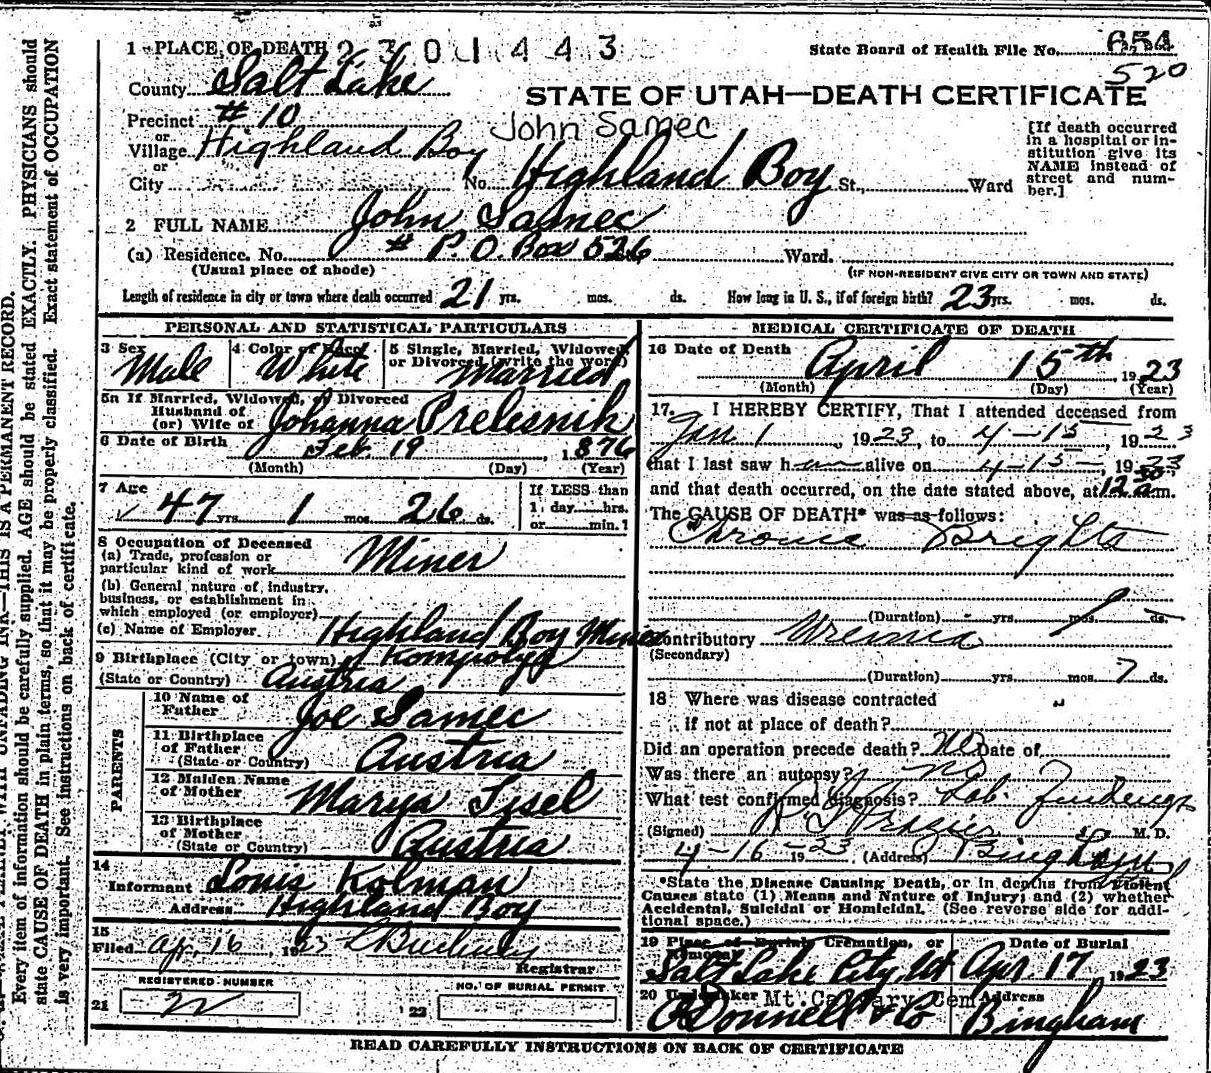 1 PLACE OF DEATH 2301443
State Board of Health File No. 654
520
County Salt Lake
STATE OF UTAH—DEATH CERTIFICATE
Precinct #10
John Samec
or
Village Highland Boy
or
City No. Highland Boy St., Ward
[If death occurred in a hospital or institution give its NAME instead of street and number.]
2 FULL NAME John Samec
(a) Residence. No. # P.O. Box 526 Ward.
(Usual place of abode)
(IF NON-RESIDENT GIVE CITY OR TOWN AND STATE)
Length of residence in city or town where death occurred 21 yrs. mos. ds. How long in U. S., if of foreign birth? 23 yrs. mos. ds.
PERSONAL AND STATISTICAL PARTICULARS
3 Sex Male
4 Color or Race White
5 Single, Married, Widowed or Divorced (write the word) Married
5a If Married, Widowed, or Divorced
Husband of
(or) Wife of Johanna Prelesnik
6 Date of Birth Feb 19, 1876
(Month) (Day) (Year)
7 Age 47 yrs. 1 mos. 26 ds.
If LESS than
1 day hrs.
or min.?
8 Occupation of Deceased
(a) Trade, profession or
particular kind of work Miner
(b) General nature of industry,
business, or establishment in
which employed (or employer)
(c) Name of Employer Highland Boy Mines
9 Birthplace (City or town) Kompolya
(State or Country) Austria
PARENTS
10 Name of
Father Joe Samec
11 Birthplace
of Father
(State or Country) Austria
12 Maiden Name
of Mother Marya Sisel
13 Birthplace
of Mother
(State or Country) Austria
14
Informant Louis Kolman
Address Highland Boy
15
Filed Apr. 16, 1923
Registrar
REGISTERED NUMBER
21
NO. OF BURIAL PERMIT
22
MEDICAL CERTIFICATE OF DEATH
16 Date of Death April 15th, 1923
(Month) (Day) (Year)
17. I HEREBY CERTIFY, That I attended deceased from
Jan 1, 1923, to 4-15, 1923
that I last saw h alive on 4-15-, 1923
and that death occurred, on the date stated above, at 12 30 a.m.
The CAUSE OF DEATH* was as follows:
Chronic Brights
(Duration) yrs. mos. ds.
Contributory Uremia
(Secondary)
(Duration) yrs. mos. 7 ds.
18 Where was disease contracted
if not at place of death?
Did an operation precede death? No Date of
Was there an autopsy? no
What test confirmed diagnosis? Lab. Findings
(Signed) Frazier M. D.
4-16-1923 (Address) Bingham
*State the Disease Causing Death, or in deaths from Violent
Causes state (1) Means and Nature of Injury; and (2) whether
Accidental, Suicidal or Homicidal. (See reverse side for additional space.)
19 Place of Burial, Cremation, or
Removal
Salt Lake City, Ut
Date of Burial
Apr 17 1923
20 Undertaker Mt. Calvary Cem
O'Donnell & Co
Address
Bingham
READ CAREFULLY INSTRUCTIONS ON BACK OF CERTIFICATE
THIS IS A PERMANENT RECORD.
Every item of information should be carefully supplied. AGE should be stated EXACTLY. PHYSICIANS should
state CAUSE OF DEATH in plain terms, so that it may be properly classified. Exact statement of OCCUPATION
is very important. See instructions on back of certificate.